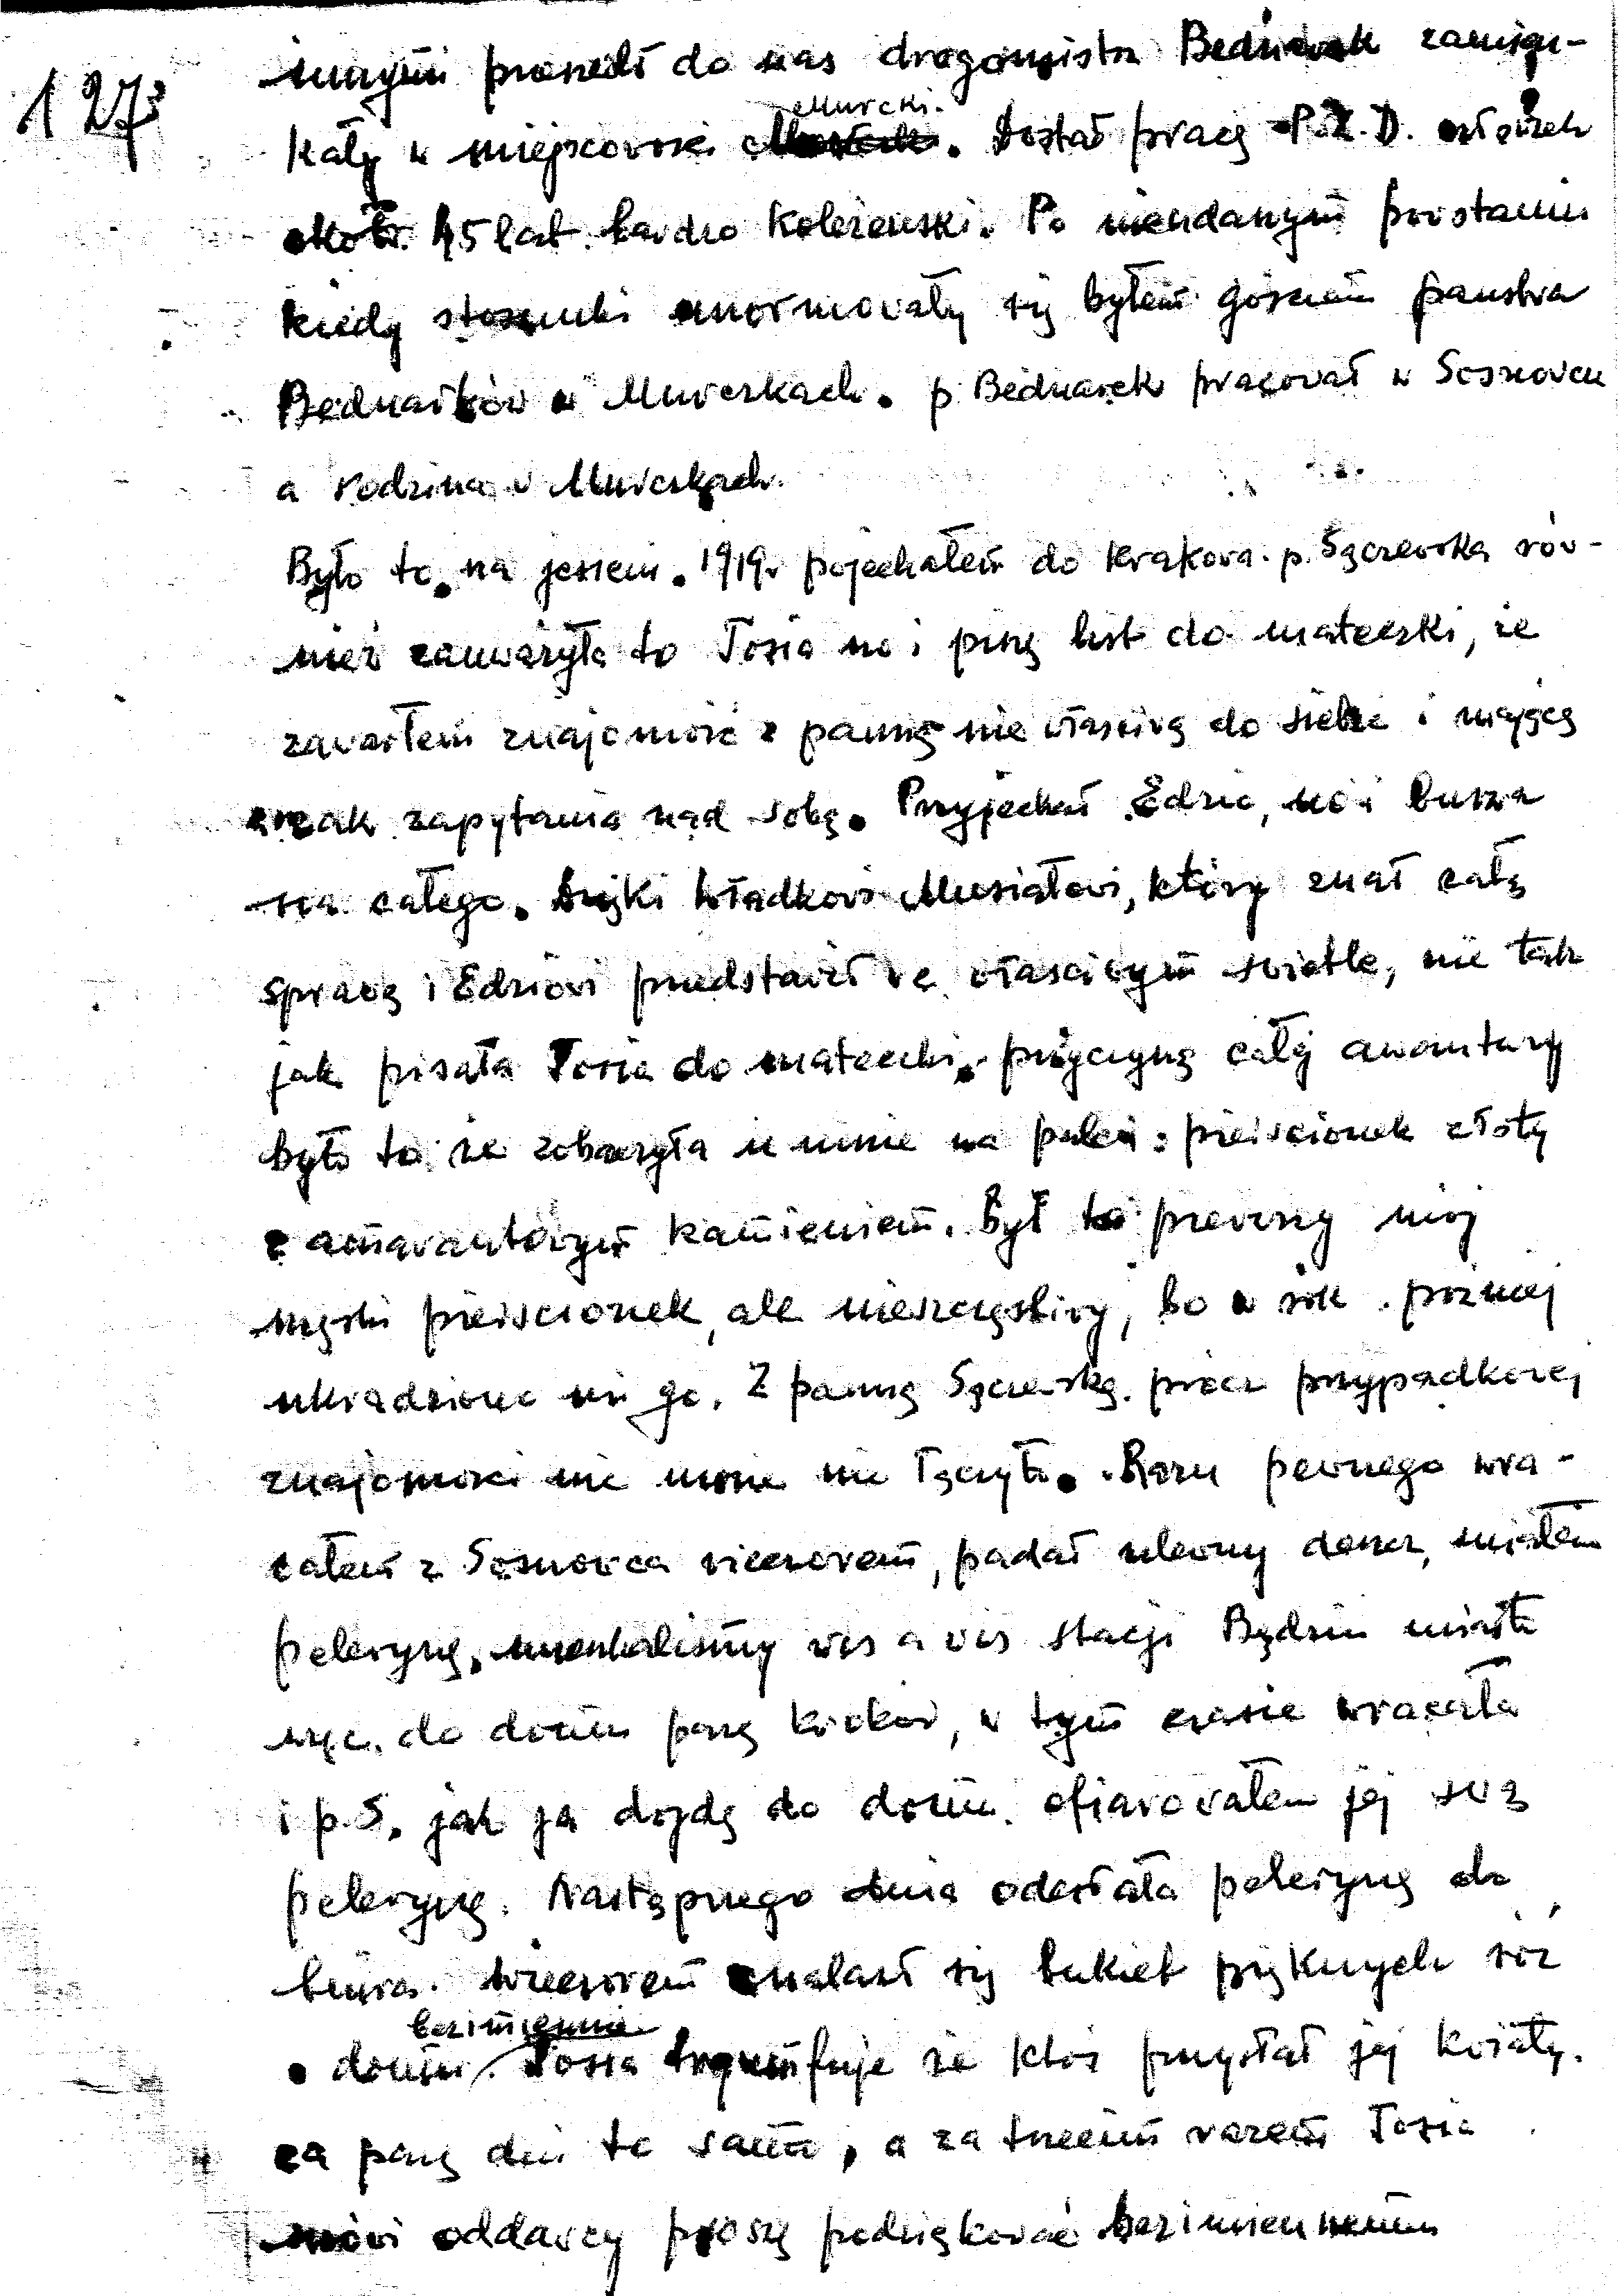 127
innymi przeszedł do nas drogomistrz Bednarek zamiesz-
Murcki.
kały w miejscowości. Dostał pracę P.K.D. człowiek
około 45 lat bardzo koleżeński. Po nieudanym powstaniu
kiedy stosunki unormowały się byłem gościem państwa
Bednarków w Murckach. p. Bednarek pracował w Sosnowcu
a rodzina w Murckach.
Było to na jesieni. 1919r pojechałem do Krakowa. p. Sączewska rów-
nież zauważyła to Tosia no i piszę list do mateczki, że
zawarłem znajomość z panną nie właściwą do siebie i mającą
znak zapytania nad sobą. Przyjechał Edzio, no i burza
na całego. Dzięki Władkowi Musiałowi, który znał całą
sprawę i Edziowi przedstawił we właściwym świetle, nie tak
jak pisała Tosia do mateczki. przyczyną całej awantury
było to że zobaczyła u mnie na palcu pierścionek złoty
z amarantowym kamieniem. Był to pierwszy mój
męski pierścionek, ale nieszczęśliwy, bo w rok później
ukradziono mi go. Z panną Sączewską prócz przypadkowej
znajomości nic mnie nie łączyło. Razu pewnego wra-
całem z Sosnowca wieczorem, padał ulewny deszcz, miałem
pelerynę, mieszkaliśmy vis a vis stacji Będzin miasto
więc do domu parę kroków, w tym czasie wracała
i p. S. jak ja dojdę do domu. ofiarowałem jej swą
pelerynę. Następnego dnia odesłała pelerynę do
biura. Wieczorem znalazł się bukiet pięknych róż
bezimiennie
w domu. Tosia tryumfuje że ktoś przysłał jej kwiaty.
za parę dni to samo, a za trzecim razem Tosia
mówi oddawcy proszę podziękować bezimiennemu